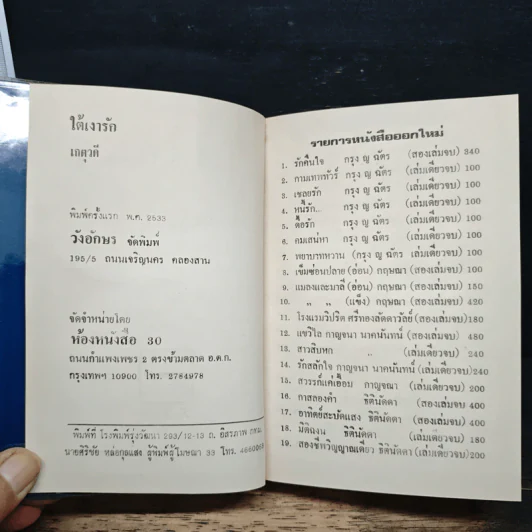 ใต้เงารัก
เกตุวดี
พิมพ์ครั้งแรก พ.ศ. 2533
วังอักษร จัดพิมพ์
195/5 ถนนเจริญนคร คลองสาน
จัดจำหน่ายโดย
ห้องหนังสือ 30
ถนนกำแพงเพชร 2 ตรงข้ามตลาด อ.ต.ก.
กรุงเทพฯ 10900 โทร. 2784978
พิมพ์ที่ โรงพิมพ์รุ่งวัฒนา 293/12-13 ถ. อิสรภาพ
นายศิริชัย หล่อกุลแสง ผู้พิมพ์ผู้โฆษณา 33 โทร.
รายการหนังสือออกใหม่
1. รักคืนใจ กรุง ญ ฉัตร (สองเล่มจบ) 340
2. กามเทพทัวร์ กรุง ญ ฉัตร (เล่มเดียวจบ) 100
3. เชลยรัก กรุง ญ ฉัตร (เล่มเดียวจบ) 100
4. หนี้รัก.. กรุง ญ ฉัตร (เล่มเดียวจบ) 100
5. ดื้อรัก กรุง ญ ฉัตร (เล่มเดียวจบ) 100
6. คมเสน่หา กรุง ญ ฉัตร (เล่มเดียวจบ) 100
7. พยาบาทหวาน (กรุง ญ ฉัตร (เล่มเดียวจบ) 100
8. เข็มซ่อนปลาย (อ่อน) กฤษณา (สองเล่มจบ) 380
9. แมลงและมาลี (อ่อน) กฤษณา (สองเล่มจบ) 150
10. " " (แข็ง) กฤษณา (สองเล่มจบ) 420
11. โรงแรมวิปริต ศรีทองลัดดาวัลย์ (สองเล่มจบ)180
12. แขวิไล กาญจนา นาคนันทน์ (สองเล่มจบ) 480
13. สาวสิบหก " (เล่มเดียวจบ) 140
14. รักสลักใจ กาญจนา นาคนันทน์ (เล่มเดียวจบ)240
15. สวรรค์แค่เอื้อม กาญจณา (เล่มเดียวจบ)200
16. กาสลองคำ ธิตินัดดา (สองเล่มจบ 400
17. อาทิตย์สะบัดแสง ธิตินัดดา (สองเล่มจบ)400
18. ธิตินัดดา (เล่มเดียวจบ) 180
19. สองชีพวิญญาณเดียว ธิตินัดดา (เล่มเดียวจบ)200